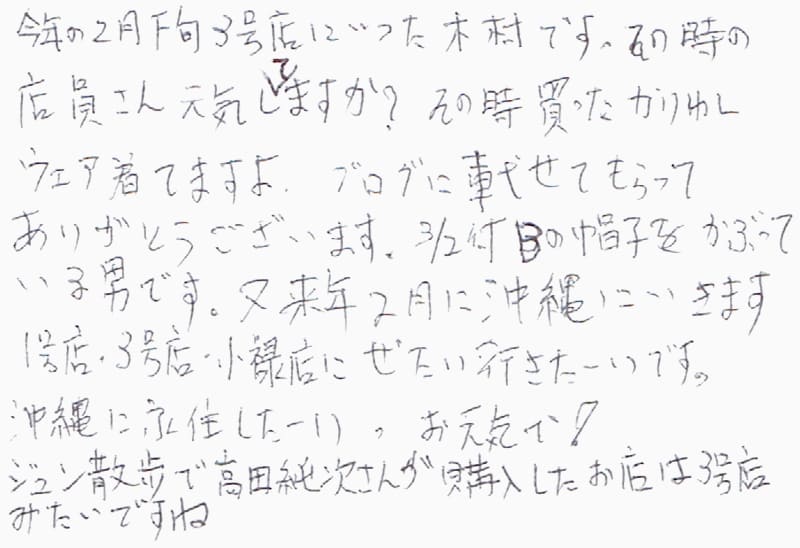 今年の2月下旬3号店にいった木村です。その時の
店員さん元気してますか?その時買ったかりゆし
ウェア着てますよ.ブログに載せてもらって
ありがとうございます。3/2付Bの帽子をかぶって
いる男です。又来年2月に沖縄にいきます
1号店・3号店・小禄店にぜたい行きたーいです。
沖縄に永住したーい。お元気で!
ジュン散歩で高田純次さんが購入したお店は3号店
みたいですね